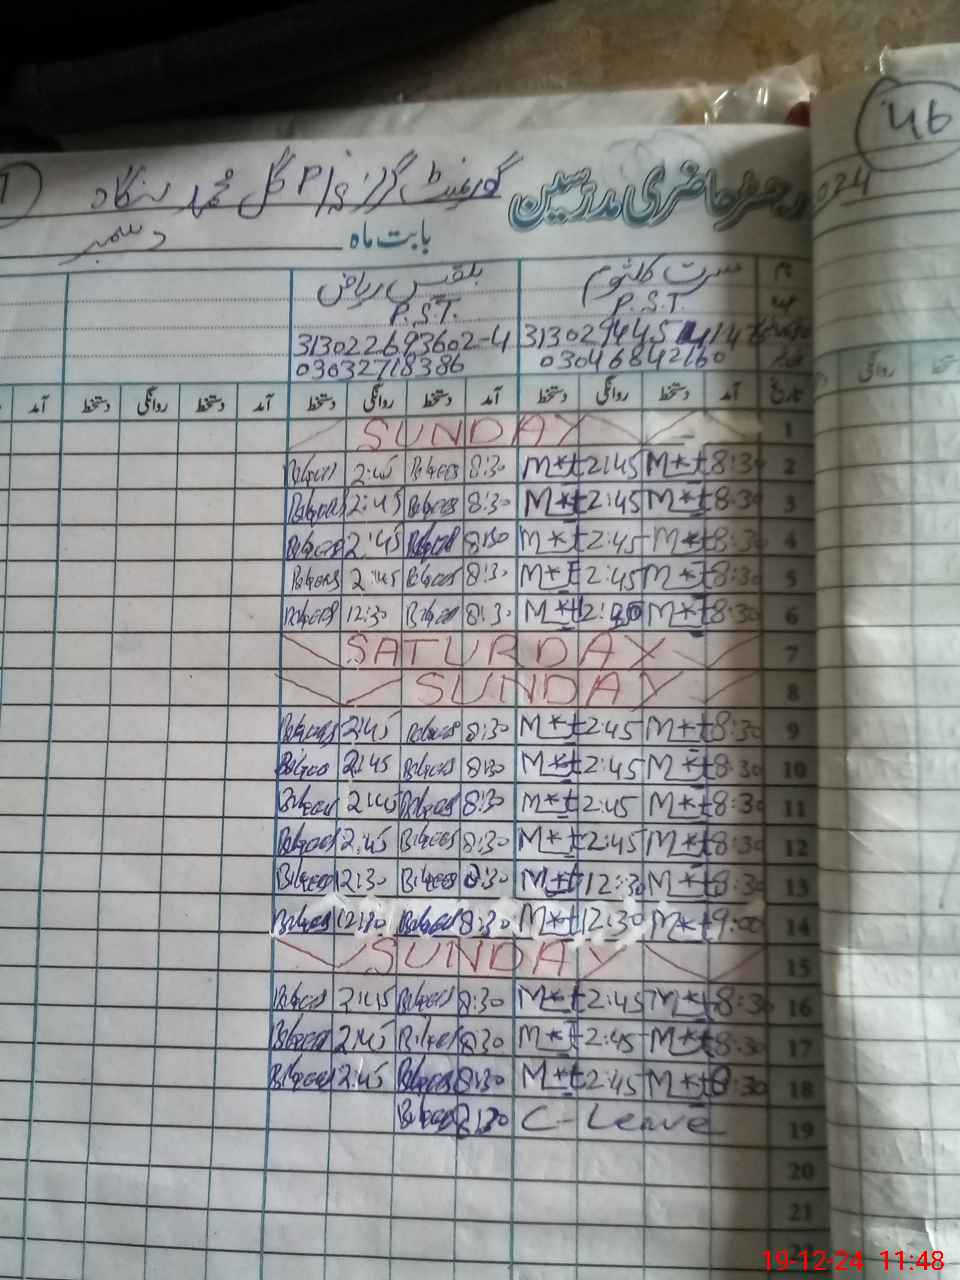 46
رجسٹر حاضری مدرسین گورنمنٹ گرلز P/S گل محمد
2024
بابت ماہ دسمبر
نام مسرت کلثوم بلقیس ریاض
P.S.T. P.S.T.
313022693602-4
03046842160 03032718386
تاریخ آمد دستخط روانگی دستخط آمد دستخط روانگی دستخط آمد دستخط روانگی دستخط آمد
روانگی دستخط
1 SUNDAY
2 8:30 M*t 2:45 M*t 8:30 Bilqees 2:45 Bilqees
3 8:30 M*t 2:45 M*t 8:30 Bilqees 2:45 Bilqees
4 8:30 M*t 2:45 M*t 8:30 Bilqees 2:45 Bilqees
5 8:30 M*t 2:45 M*t 8:30 Bilqees 2:45 Bilqees
6 8:30 M*t M*t 8:30 Bilqees 12:30 Bilqees
7 SATURDAY
8 SUNDAY
9 8:30 M*t 2:45 M*t 8:30 Bilqees 2:45 Bilqees
10 8:30 M*t 2:45 M*t 8:30 Bilqees 2:45 Bilqees
11 8:30 M*t 2:45 M*t 8:30 Bilqees 2:45 Bilqees
12 8:30 M*t 2:45 M*t 8:30 Bilqees 2:45 Bilqees
13 8:30 M*t 12:30 M*t 8:30 Bilqees 12:30 Bilqees
14 9:00 M*t 12:30 M*t 8:30 Bilqees 12:30 Bilqees
15 SUNDAY
16 8:30 M*t 2:45 M*t 8:30 Bilqees 2:45 Bilqees
17 8:30 M*t 2:45 M*t 8:30 Bilqees 2:45 Bilqees
18 8:30 M*t 2:45 M*t 8:30 Bilqees 2:45 Bilqees
19 C-Leave 8:30 Bilqees
20
21
22
19-12-24 11:48